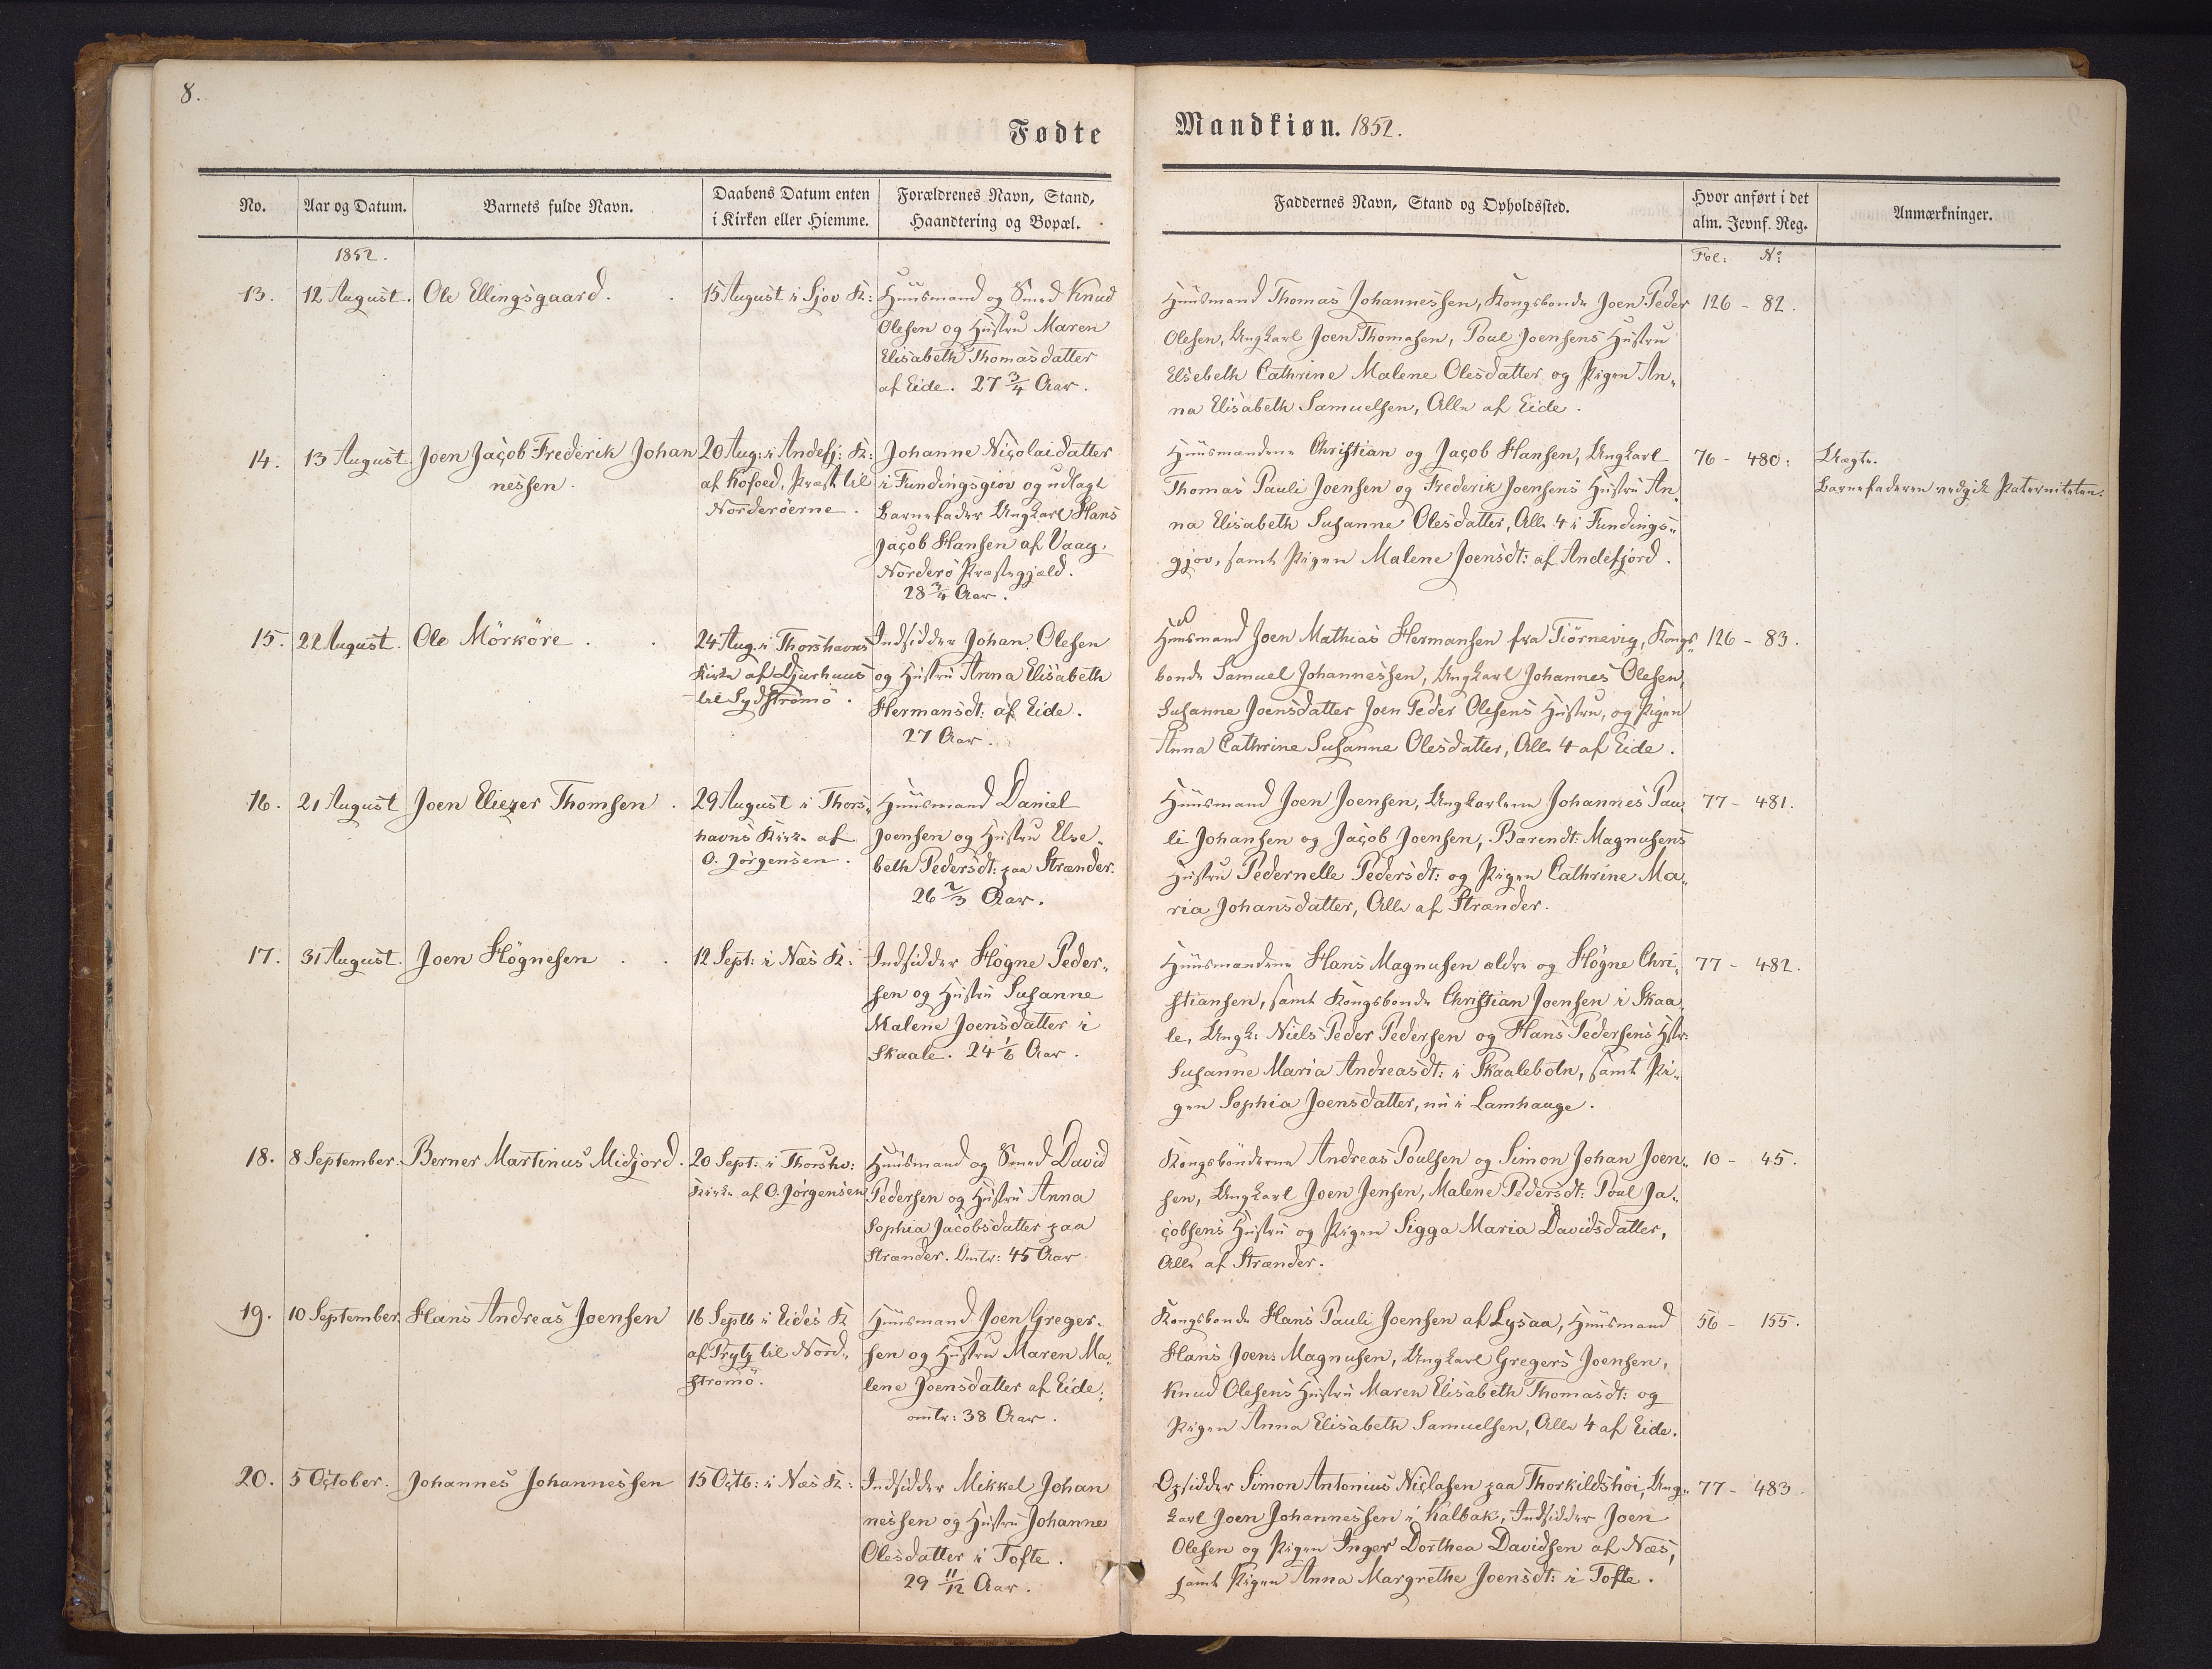 8.
Fødte
Mandkiøn. 1852.
No.
Aar og Datum.
Barnets fulde Navn.
Daabens Datum enten
i Kirken eller Hiemme.
Forældrenes Navn, Stand,
Haandtering og Bopæl.
Faddernes Navn, Stand og Opholdssted.
Hvor anført i det
alm. Jevnf. Reg.
Anmærkninger.
1852.
Fol: No:
13.
12 August.
Ole Ellingsgaard.
15 August i Sjov K:
Huusmand og Smed Knud
Olesen og Hustru Maren
Elisabeth Thomasdatter
af Eide. 27 3/4 Aar.
Huusmand Thomas Johannessen, Kongsbonde Joen Peder
Olesen, Ungkarl Joen Thomasen, Poul Joensens Hustru
Elsebeth Cathrine Malene Olesdatter og Pigen An„
na Elisabeth Samuelsen, Alle af Eide.
126 - 82.
14.
13 August
Joen Jacob Frederik Johan
nessen.
20 Aug: i Andefj: K:
af Kofoed, Præst til
Norderøerne.
Johanne Nicolaidatter
i Fundingsgiov og udlagt
Barnefader Ungkarl Hans
Jacob Hansen af Vaag,
Norderø Præstegjæld.
28 3/4 Aar.
Huusmændene Christian og Jacob Hansen, Ungkarl
Thomas Pauli Joensen og Frederik Joensens Hustru An„
na Elisabeth Susanne Olesdatter, Alle 4 i Fundings„
gjov, samt Pigen Malene Joensdt: af Andefjord.
76 - 480:
Uægte.
Barnefaderen vedgik Paterniteten.
15.
22 August.
Ole Mörköre.
24 Aug. i Thorshavns
Kirke af Djurhuus
til Sydstrømø.
Indsidder Johan Olesen
og Hustru Anna Elisabeth
Hermansdt: af Eide.
27 Aar.
Huusmand Joen Mathias Hermansen fra Tiørnevig, Kongs„
bonde Samuel Johannessen, Ungkarl Johannes Olesen,
Susanne Joensdatter Joen Peder Olesens Hustru, og Pigen
Anna Cathrine Susanne Olesdatter, Alle 4 af Eide.
126 - 83.
16.
21 August
Joen Eliezer Thomsen.
29 August i Thors„
havns Kirke af
O. Jörgensen.
Huusmand Daniel
Joensen og Hustru Else„
beth Pedersdt: paa Strænder.
26 2/3 Aar.
Huusmand Joen Joensen, Ungkarlene Johannes Pau„
li Johansen og Jacob Joensen, Bærendt: Magnusens
Hustru Pedernelle Pedersdt: og Pigen Cathrine Ma„
ria Johansdatter, Alle af Strænder.
77 - 481.
17.
31 August.
Joen Högnesen
12 Sept: i Næs K:
Indsidder Högne Peder„
sen og Hustru Susanne
Malene Joensdatter i
Skaale. 24 1/6 Aar.
Huusmændene Hans Magnusen ældre og Högne Chri„
stiansen, samt Kongsbonde Christian Joensen i Skaa„
le, Ungk: Niels Peder Pedersen og Hans Pedersens Hstr:
Susanne Maria Andreasdt: i Skaalebotn, samt Pi„
gen Sophia Joensdatter, nu i Lamhauge.
77 - 482.
18.
8 September.
Berner Martinus Midjord.
20 Sept: i Thorshv:
Kirke af O. Jörgensen
Huusmand og Smed David
Pedersen og Hustru Anna
Sophia Jacobsdatter paa
Strænder. Omtr: 45 Aar
Kongsbönderne Andreas Poulsen og Simon Johan Joen„
sen, Ungkarl Joen Jensen, Malene Pedersdt: Poul Ja„
cobsens Hustru og Pigen Sigga Maria Davidsdatter,
Alle af Strænder.
10 - 45.
19.
10 September.
Hans Andreas Joensen
16 Septb i Eides K
af Prytz til Nord„
strømø.
Huusmand Joen Greger„
sen og Hustru Maren Ma„
lene Joensdatter af Eide;
omtr: 38 Aar.
Kongsbonde Hans Pauli Joensen af Lysaa, Huusmand
Hans Joens Magnusen, Ungkarl Gregers Joensen,
Knud Olesens Hustru Maren Elisabeth Thomasdt: og
Pigen Anna Elisabeth Samuelsen, Alle 4 af Eide.
56 - 155.
20.
5 October.
Johannes Johannessen
15 Octb: i Næs K:
Indsidder Mikkel Johan
nessen og Hustru Johanne
Olesdatter i Tofte.
29 11/12 Aar.
Opsidder Simon Antonius Niclasen paa Thorkildshöi, Ung„
karl Joen Johannessen i Kalbak, Indsidder Joen
Olesen og Pigen Inger Dorthea Davidsen af Næs,
samt Pigen Anna Margrethe Joensdt: i Tofte.
77 - 483.